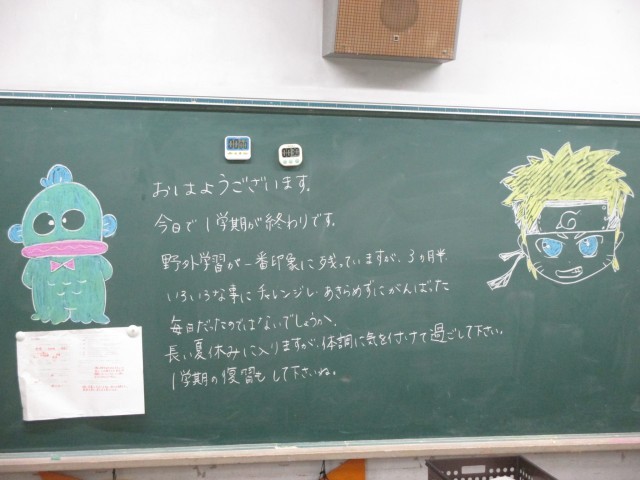 おはようございます。
今日で1学期が終わりです。
野外学習が一番印象に残っていますが、3ヶ月半、
いろいろな事にチャレンジし、あきらめずにがんばった
毎日だったのではないでしょうか。
長い夏休みに入りますが、体調に気を付けて過ごして下さい。
1学期の復習もして下さいね。